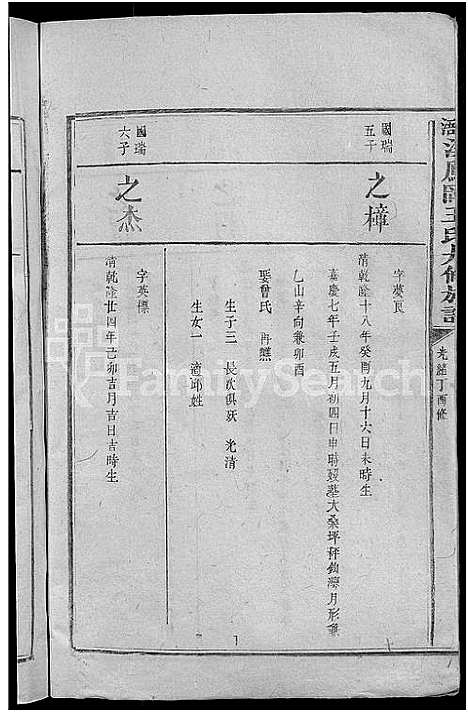 王氏
族譜
光緒丁酉修
國瑞
五子
之樟
字夢良
清乾隆十八年癸酉九月十六日未時生
嘉慶七年壬戌五月初四日申時歿墓大桑坪秤鉤灣月形
乙山辛向兼卯酉
娶曾氏 再熊
生子三 長次俱殀 光清
生女一 適邱姓
國瑞
六子
之杰
字英標
清乾隆廿四年己卯吉月吉日吉時生
FamilySearch